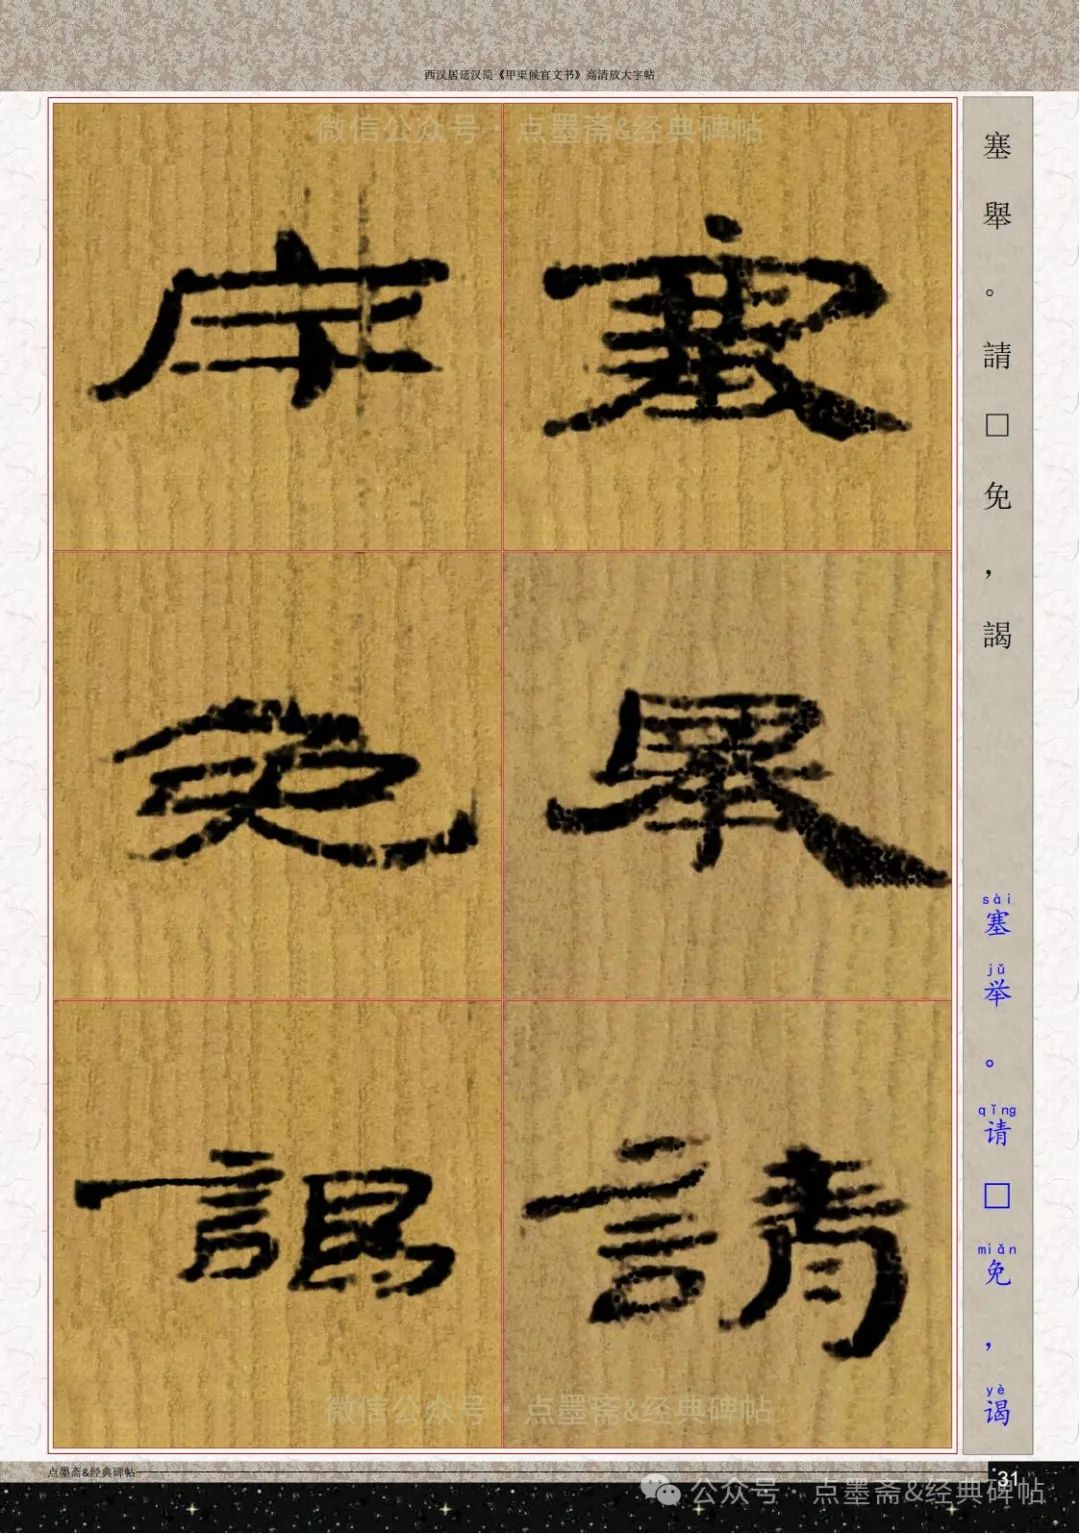 西汉居延汉简《甲渠候官文书》高清放大字帖
微信公众号·点墨斋&经典碑帖
塞
舉
請
免
謁
塞舉。請□免，謁
sài jǔ qǐng miǎn yè
塞举。请□免，谒
微信公众号·点墨斋&经典碑帖
点墨斋&经典碑帖
31
公众号·点墨斋&经典碑帖